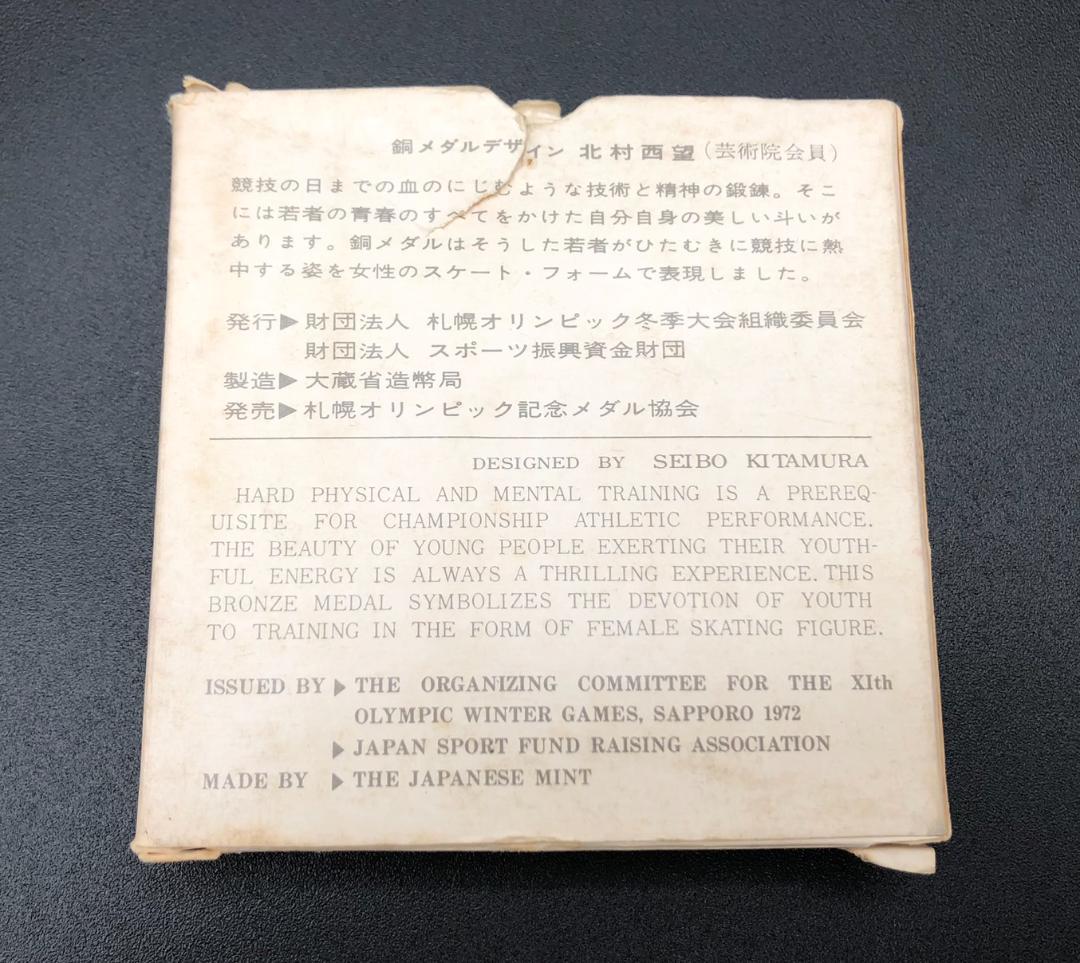 銅メダルデザイン 北村西望（芸術院会員）
競技の日までの血のにじむような技術と精神の鍛錬。そこ
には若者の青春のすべてをかけた自分自身の美しい斗いが
あります。銅メダルはそうした若者がひたむきに競技に熱
中する姿を女性のスケート・フォームで表現しました。
発行▶財団法人 札幌オリンピック冬季大会組織委員会
財団法人 スポーツ振興資金財団
製造▶大蔵省造幣局
発売▶札幌オリンピック記念メダル協会
DESIGNED BY SEIBO KITAMURA
HARD PHYSICAL AND MENTAL TRAINING IS A PREREQ-
UISITE FOR CHAMPIONSHIP ATHLETIC PERFORMANCE.
THE BEAUTY OF YOUNG PEOPLE EXERTING THEIR YOUTH-
FUL ENERGY IS ALWAYS A THRILLING EXPERIENCE. THIS
BRONZE MEDAL SYMBOLIZES THE DEVOTION OF YOUTH
TO TRAINING IN THE FORM OF FEMALE SKATING FIGURE.
ISSUED BY ▶ THE ORGANIZING COMMITTEE FOR THE XIth
OLYMPIC WINTER GAMES, SAPPORO 1972
▶ JAPAN SPORT FUND RAISING ASSOCIATION
MADE BY ▶ THE JAPANESE MINT